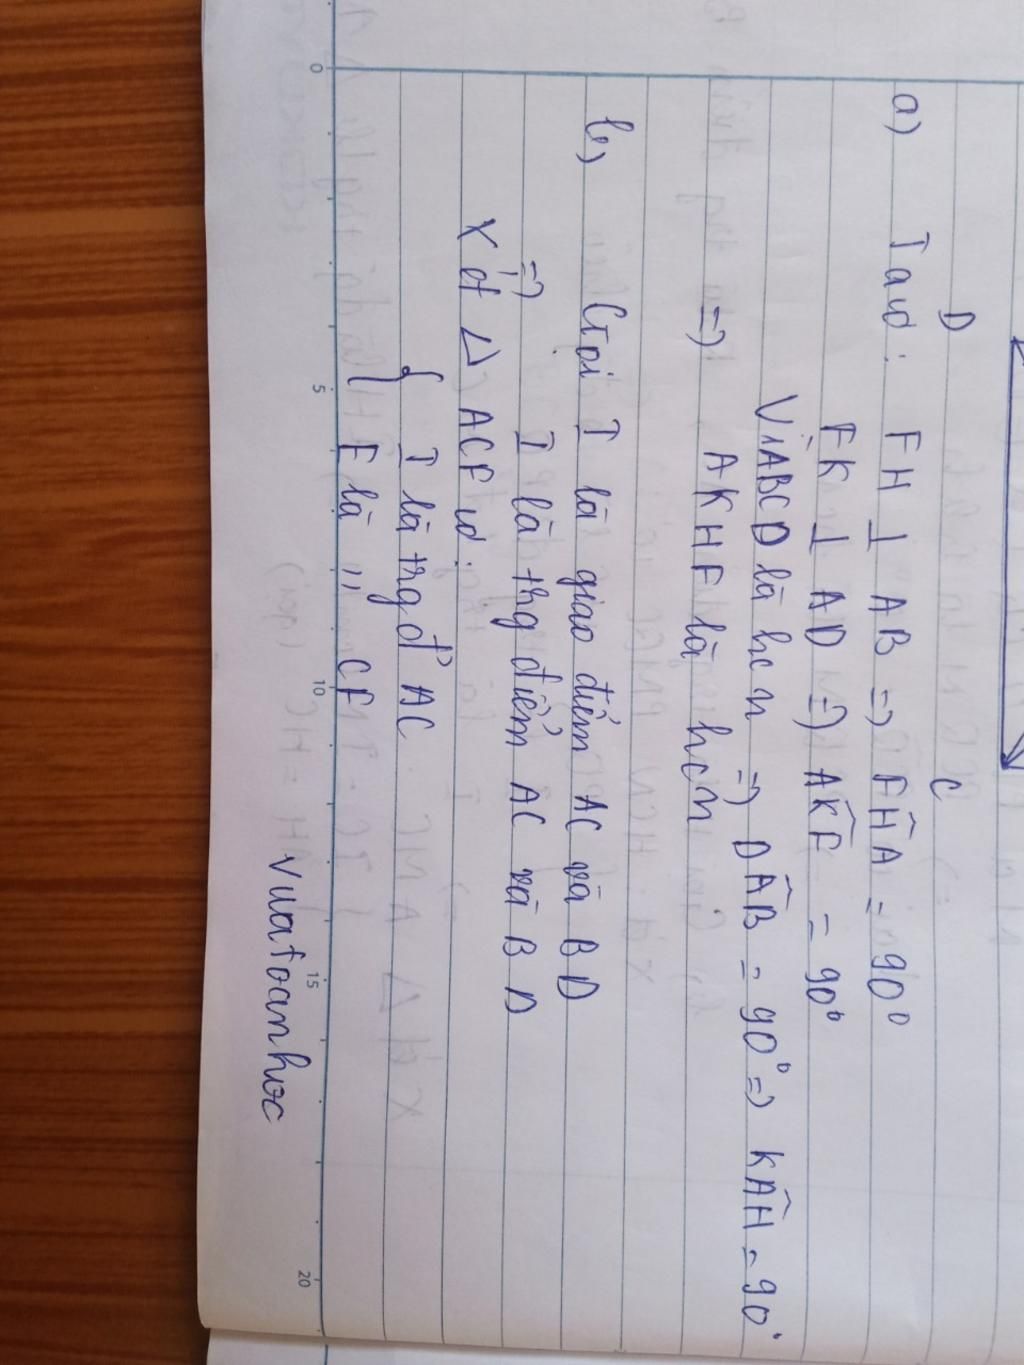 D C
a) Ta có: FH ⊥ AB => FĤA = 90°
FK ⊥ AD => AK̂F = 90°
Vì ABCD là hcn => DÂB = 90° => KÂH = 90°
=> AKHF là hcn
b) Gọi I là giao điểm AC và BD
=> I là trg điểm AC và BD
Xét Δ ACF có:
{ I là trg đ' AC
F là ,, CF
Vuatoanhoc
0 5 10 15 20